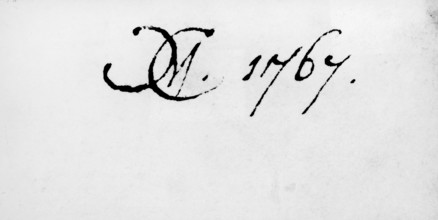 M. 1767.